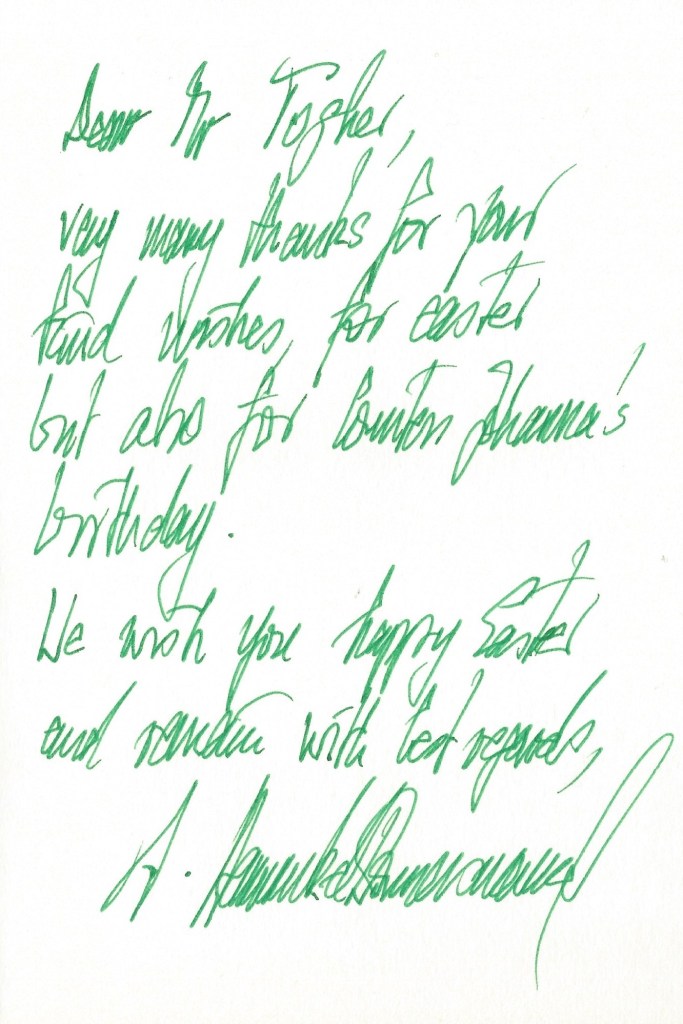 Dear Mr Togher,
very many thanks for your
kind wishes, for easter
but also for Comtess Johanna's
birthday.
We wish you happy Easter
and remain with best regards,